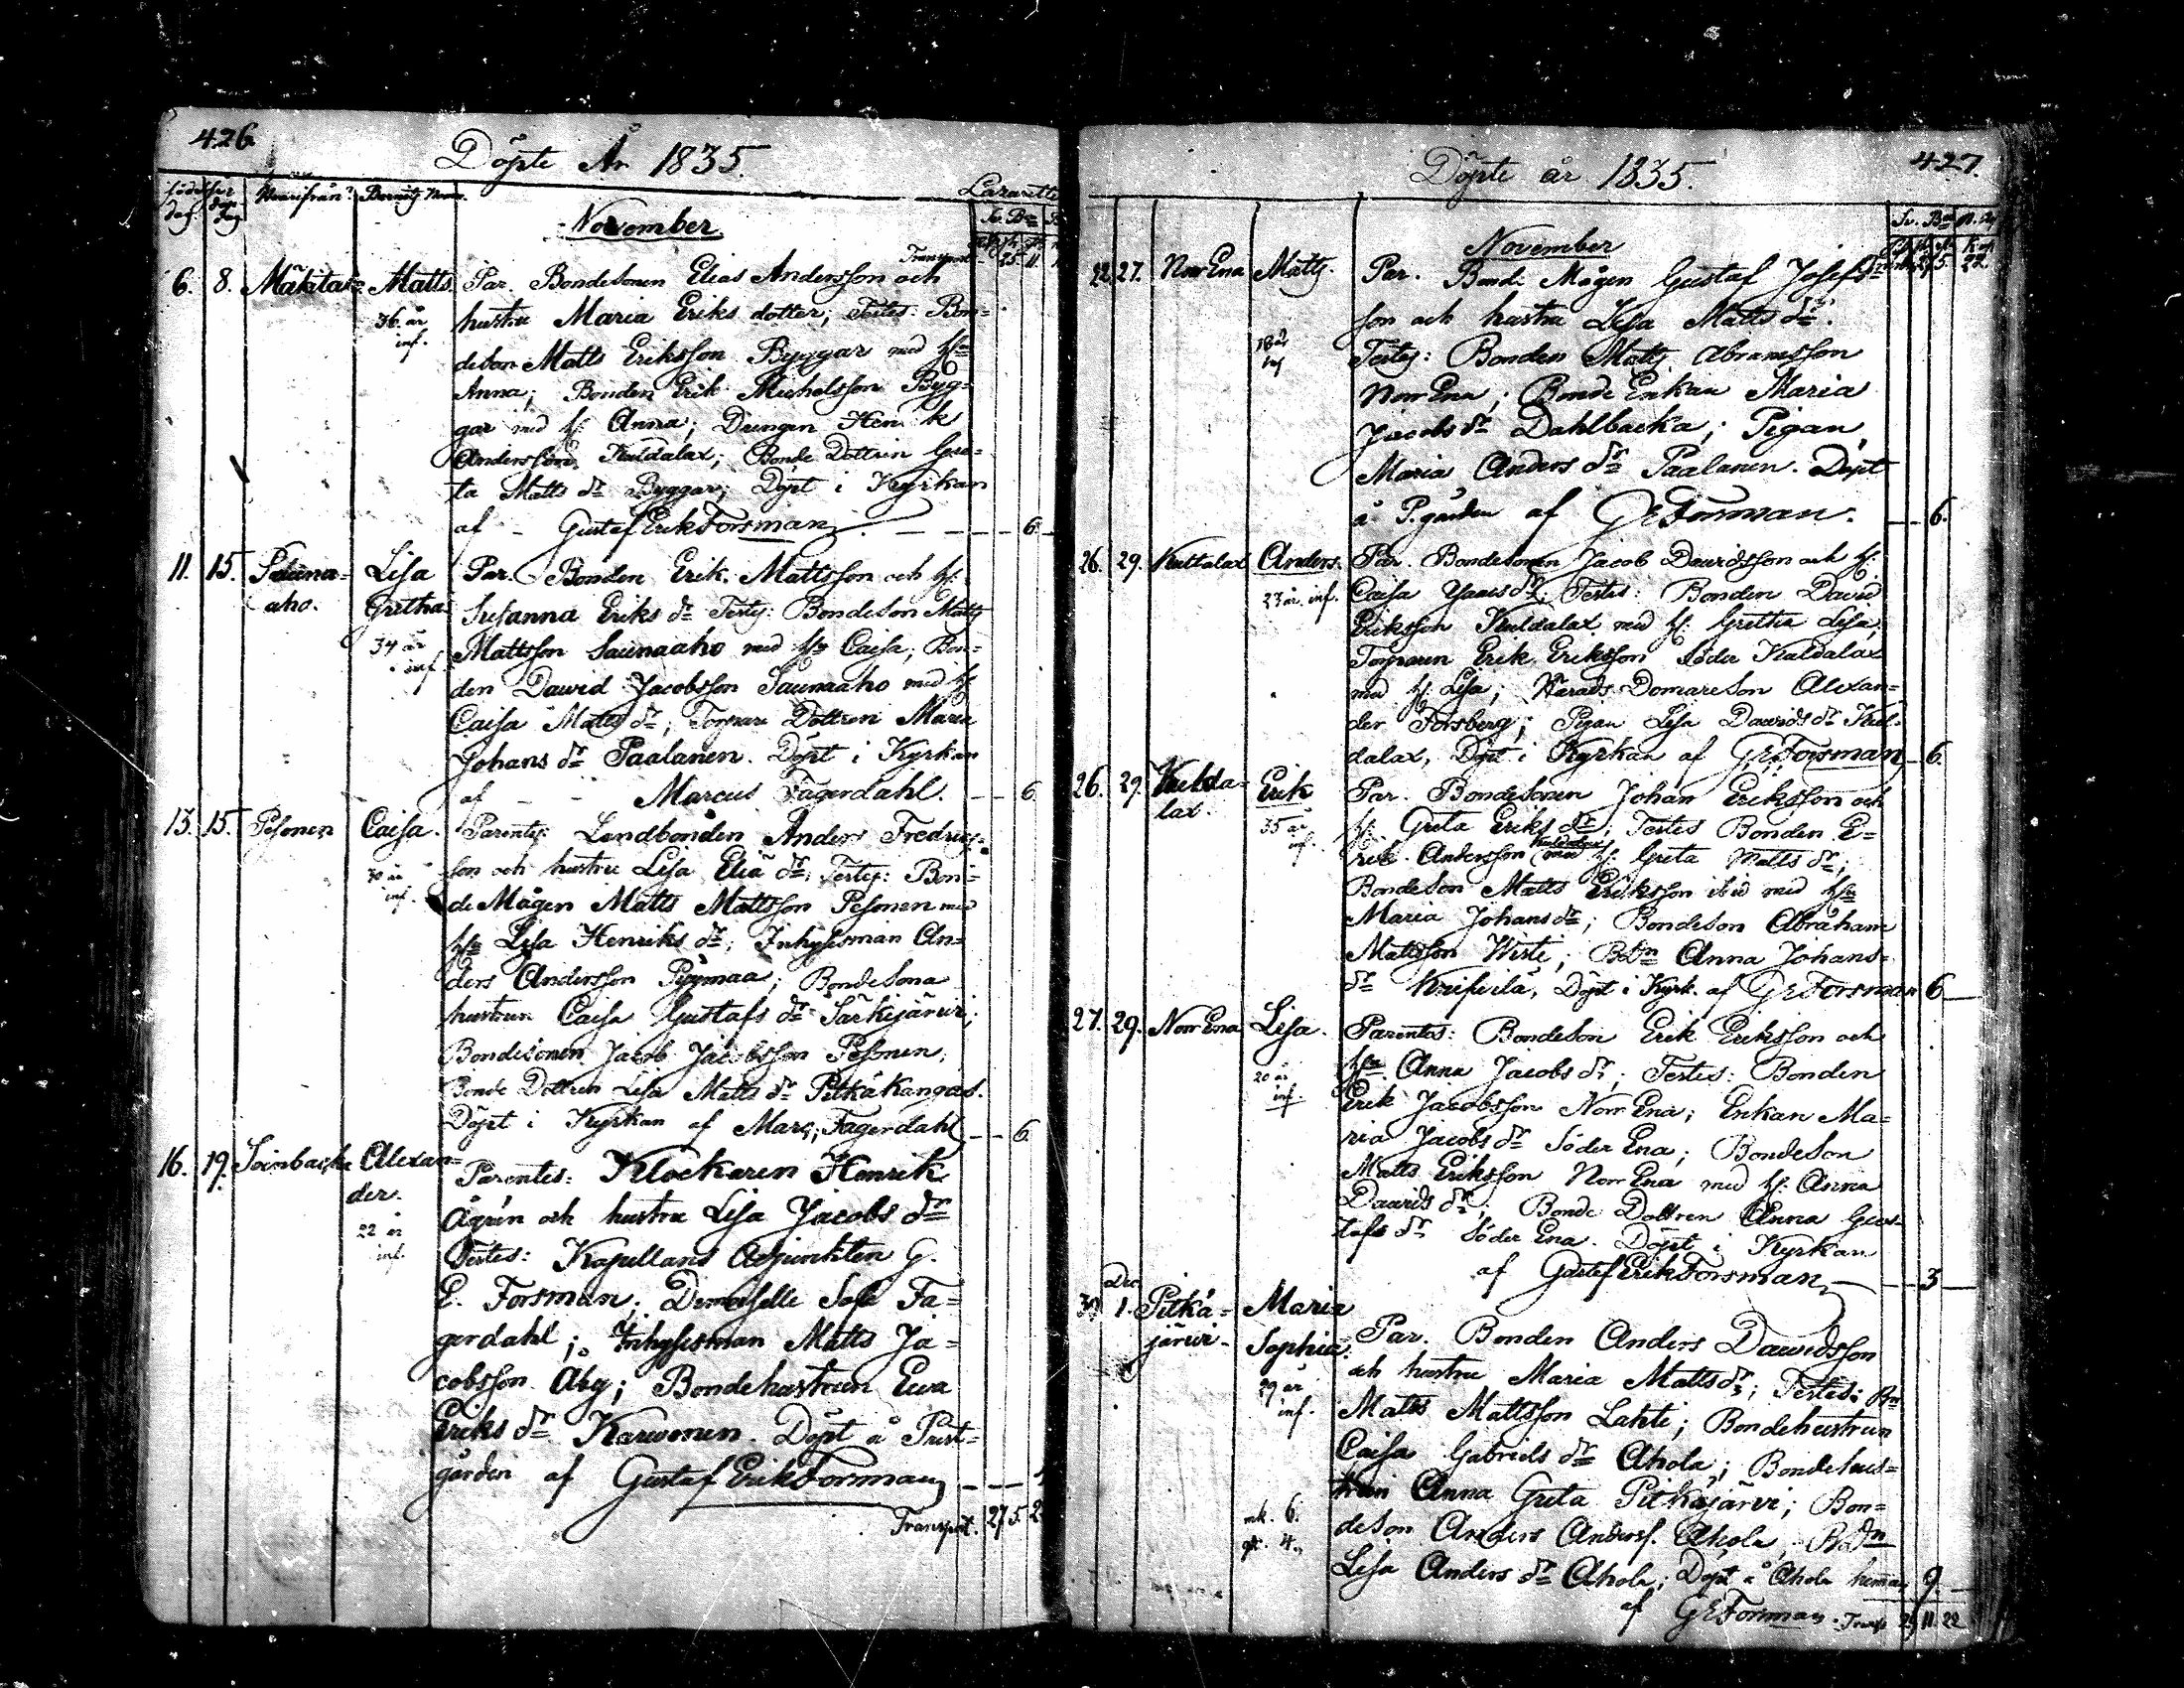 426
Döpte År 1835.
Födelse dag. Döpe dag Hvarifrån? Barnets Namn. Lazarette
November
Sv. B:co
Transport 25 11
6. 8. Mäkitalo Matts. Par. Bondesonen Elias Andersson och
36 år hustru Maria Eriks dotter; Testes: Bon=
inf. deson Matts Eriksson Byggar med h:u
Anna; Bonden Erik Michelsson Byg=
gar med h. Anna; Drengen Henrik
Andersson Kuldalax; Bonde Dottren Gre=
ta Matts dr Byggar; Döpt i Kyrkan
af - Gustaf Erik Forsman. - 6
11. 15. Sauna= Lisa Par. Bonden Erik Mattsson och h:
aho. Gretha Susanna Eriks dr Testes: Bondeson Matts
34 år Mattsson Saunaaho med h:u Caisa; Bon=
inf. den Dawid Jacobsson Saunaaho med h:
Caisa Matts dr; Torpare Dottren Maria
Johans dr Paalanen. Döpt i Kyrkan
af - - Marcus Fagerdahl. - - 6
13. 15. Pesonen Caisa. Parentes: Landbonden Anders Fredrics=
30 år son och hustru Lisa Elia dr; Testes: Bon=
inf. de Mågen Matts Mattsson Pesonen med
h:u Lisa Henriks dr; Inhysesman An=
ders Andersson Pyymaa; Bondesona
hustrun Caisa Gustafs dr Särkijärwi;
Bondesonen Jacob Jacobsson Pesonen;
Bonde Dottren Lisa Matts dr Pitkäkangas.
Döpt i Kyrkan af Marc; Fagerdahl - - 6
16. 19. Soinbacka Alexan= Parentes: Klockaren Henrik
der. Ågren och hustru Lisa Jacobs dr
22 år Testes: Kapellans Adjunkten G.
inf. E. Forsman; Demoiselle Sofi Fa=
gerdahl; Inhysesman Matts Ja=
cobsson Aby; Bondehustrun Ewa
Eriks dr Karwonen. Döpt å Prest=
gården af Gustaf Erik Forsman
Transport. 27 5 2
427.
Döpte år 1835.
November
22. 27. Norr Ena Matts. Par. Bonde Mågen Gustaf Josefs=
son och hustru Lisa Matts dr.
18 år Testes: Bonden Matts Abramsson
inf Norr Ena; Bonde Enkan Maria
Jacobs dr Dahlbacka; Pigan
Maria Anders dr Paalanen. Döpt
å P.gården af G E Forsman. 6.
26. 29. Kuldalax Anders. Par. Bondesonen Jacob Dawidsson och h:
23 år. inf. Caisa Isaacs dr; Testes: Bonden David
Eriksson Kuldalax med h: Gretha Lisa;
Torparen Erik Eriksson Söder Kuldalax
med h: Lisa; Härads Domareson Alexan=
der Forsberg; Pigan Lisa Dawids dr Kul=
dalax, Döpt i Kyrkan af G E Forsman 6.
26. 29. Kulda= Erik Par. Bondesonen Johan Eriksson och
lax. 35 år h: Greta Eriks dr; Testes Bonden E=
inf. rik Andersson Kuldalax med h: Greta Matts dr;
Bondeson Matts Eriksson ibid med h:u
Maria Johans dr; Bondeson Abraham
Mattsson Wiste; B.dn Anna Johans=
dr Krifsilä, Döpt i Kyrk. af G E Forsman 6
27. 29. Norr Ena Lisa. Parentes: Bondeson Erik Eriksson och
20 år h:u Anna Jacobs dr; Testes: Bonden
inf. Erik Jacobsson Norr Ena; Enkan Ma=
ria Jacobs dr Söder Ena; Bondeson
Matts Eriksson Norr Ena med h: Anna
Dawids dr; Bonde Dottren Anna Gus=
tafs dr Söder Ena. Döpt i Kyrkan
af Gustaf Erik Forsman 3
Dec
30 1. Pitkä= Maria
järwi. Sophia. Par. Bonden Anders Dawidsson
29 år och hustru Maria Matts dr; Testes: Bn
inf. Matts Mattsson Lahti; Bondehustrun
Caisa Gabriels dr Ahola; Bondehus=
trun Anna Greta Pitkäjärwi; Bon=
mk. 6. deson Anders Anders. Ahola; B.dn
qk. 4. Lisa Anders dr Ahola; Döpt å Ahola heman 9
af G E Forsman. Transp 29 11 22